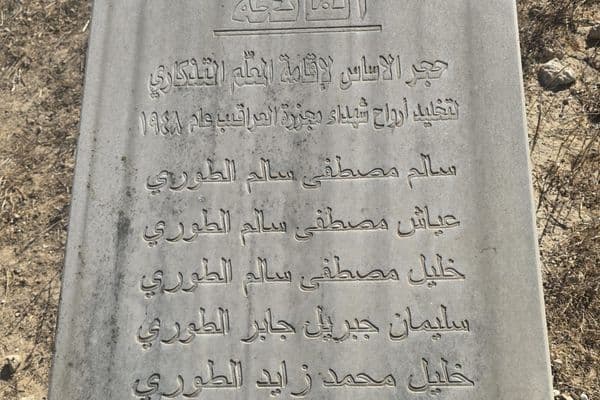 الفاتحة
حجر الاساس لإقامة المعلّم التذكاري
لتخليد أرواح شهداء مجزرة العراقيب عام ١٩٤٨
سالم مصطفى سالم الطوري
عياش مصطفى سالم الطوري
خليل مصطفى سالم الطوري
سليمان جبريل جابر الطوري
خليل محمد زايد الطوري